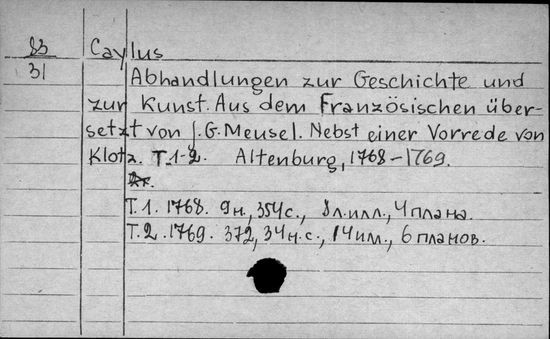 83 Caylus
31 Abhandlungen zur Geschichte und
zur Kunst. Aus dem Französischen über-
setzt von J. G. Meusel. Nebst einer Vorrede von
Klotz. T. 1-2. Altenburg, 1768-1769.
T. 1. 1768. 9н., 354 с., 8 л. илл., 4 плана.
T. 2. 1769. 372, 34 н. с., 14 илл., 6 планов.